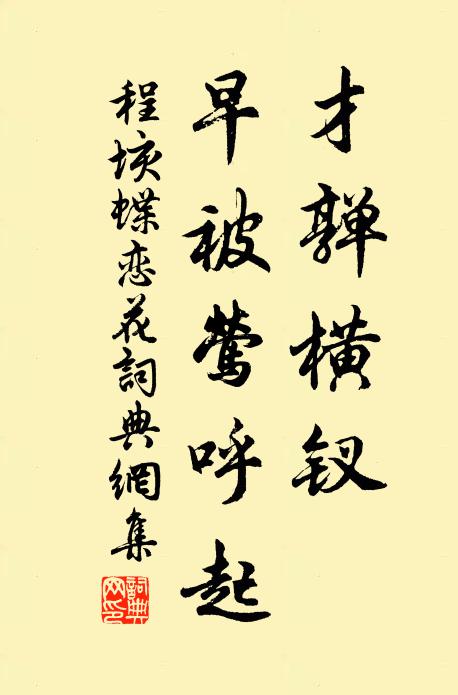 才亸横钗
早被莺呼起
程垓蝶恋花詞典網集
詞典网印